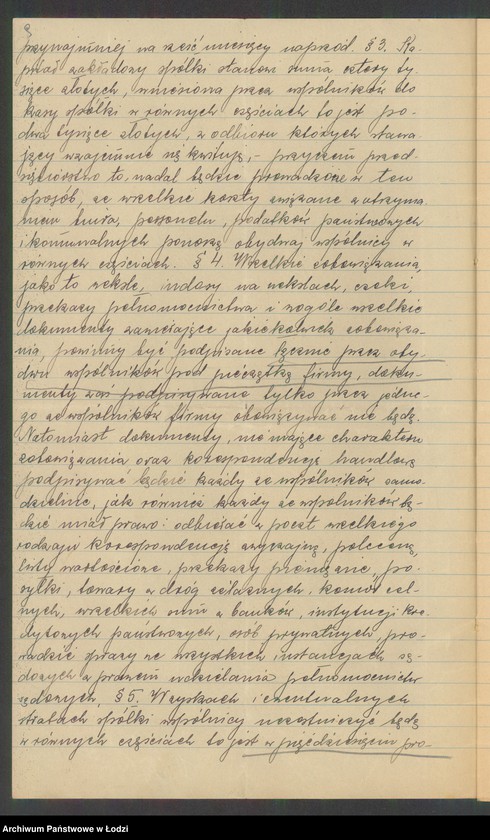 przynajmniej na sześć miesięcy naprzód. § 3. Ka-
pitał zakładowy spółki stanowi suma cztery ty-
siące złotych, wniesiona przez wspólników do
kasy spółki w równych częściach to jest po-
dwa tysiące złotych, z odbioru których stawa-
jący wzajemnie się kwitują, – przyczem przed-
siębiorstwo to, nadal będzie prowadzone w ten
sposób, że wszelkie koszty związane z utrzyma-
niem biura, personelu, podatków państwowych
i komunalnych ponoszą obydwaj wspólnicy w
równych częściach. § 4. Wszelkie zobowiązania,
jako to weksle, indosy na wekslach, czeki,
przekazy pełnomocnictwa i wogóle wszelkie
dokumenty zawierające jakiekolwiek zobowiąza-
nia, powinny być podpisane łącznie przez oby-
dwu wspólników pod pieczątką firmy, doku-
menty zaś podpisywane tylko przez jedne-
go ze wspólników firmy obowiązywać nie będą.
Natomiast dokumenty, nie mające charakteru
zobowiązania oraz korespondencję handlową
podpisywać będzie każdy ze wspólników samo-
dzielnie, jak również każdy ze wspólników bę-
dzie miał prawo: odbierać z poczt wszelkiego
rodzaju korespondencję zwyczajną, poleconą,
listy wartościowe, przekazy pieniężne, po-
syłki, towary z dróg żelaznych, komór cel-
nych, wszelkich sum z banków, instytucji kre-
dytowych państwowych, osób prywatnych, pro-
wadzić sprawy we wszystkich instancjach są-
dowych z prawem udzielania pełnomocnictw
sądowych. § 5. W zyskach i ewentualnych
stratach spółki wspólnicy uczestniczyć będą
w równych częściach to jest w pięćdziesięciu pro-
Archiwum Państwowe w Łodzi